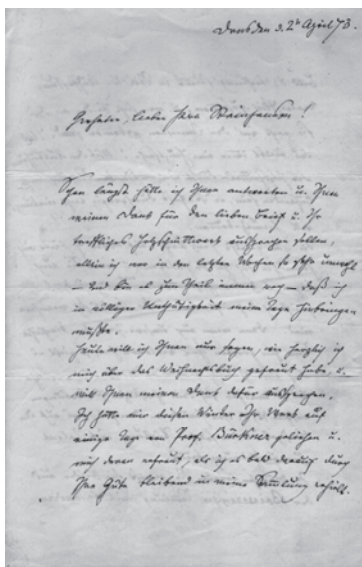 Dresden d. 2t April 73.
Geehrter, lieber Herr Steinhausen!
Schon längst hätte ich Ihnen antworten u. Ihnen
meinen Dank für den lieben Brief u. Ihr
treffliches Holzschnittwerk aussprechen sollen,
allein ich war in den letzten Wochen so sehr unwohl
– und bin es zum Theil immer noch – daß ich
in völliger Unthätigkeit meine Tage hinbringen
mußte.
Heute will ich Ihnen nur sagen, wie herzlich ich
mich über das Weihnachtsbuch gefreut habe, u.
will Ihnen meinen Dank dafür aussprechen.
Ich hatte mir diesen Winter Ihr Werk auf
einige Tage von Prof. Bürkner geliehen u.
mich daran erfreut, als ich es bald darauf durch
Ihre Güte bleibend in meine Sammlung erhielt.